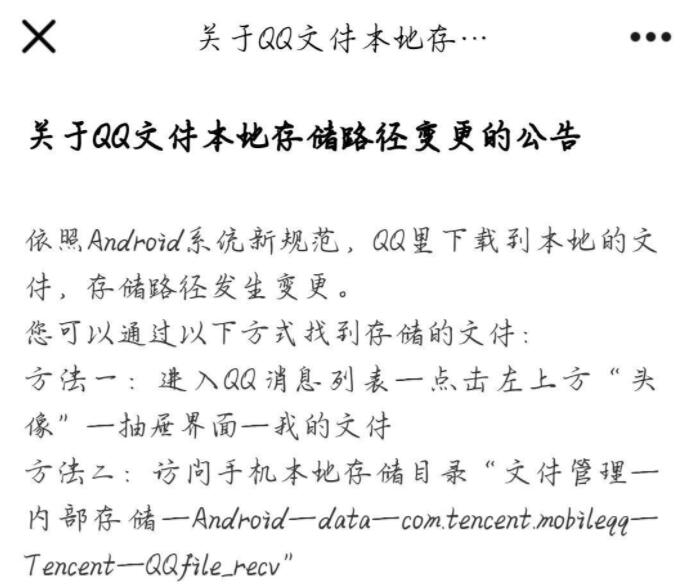 关于QQ文件本地存…
关于QQ文件本地存储路径变更的公告
依照Android系统新规范，QQ里下载到本地的文
件，存储路径发生变更。
您可以通过以下方式找到存储的文件：
方法一：进入QQ消息列表—点击左上方“头
像”—抽屉界面—我的文件
方法二：访问手机本地存储目录“文件管理—
内部存储—Android—data—com.tencent.mobileqq—
Tencent—QQfile_recv”